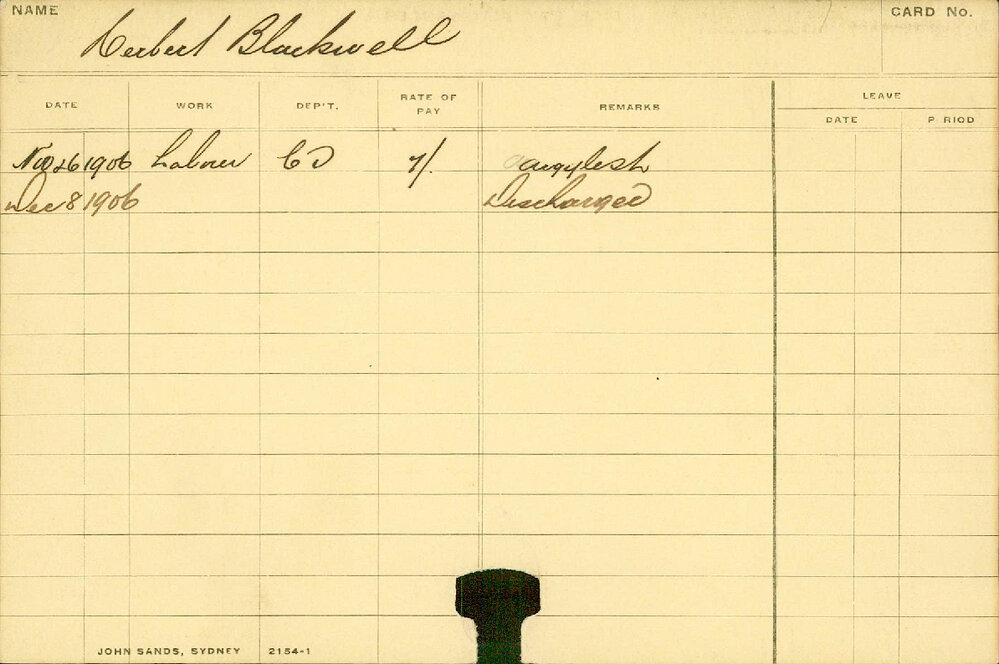 NAME
CARD No.
Herbert Blackwell
DATE WORK DEP'T. RATE OF PAY REMARKS LEAVE
DATE P RIOD
Nov 26 1906 Labourer CD 7/. Argyle St
Dec 8 1906 Discharged
JOHN SANDS, SYDNEY 2154-1